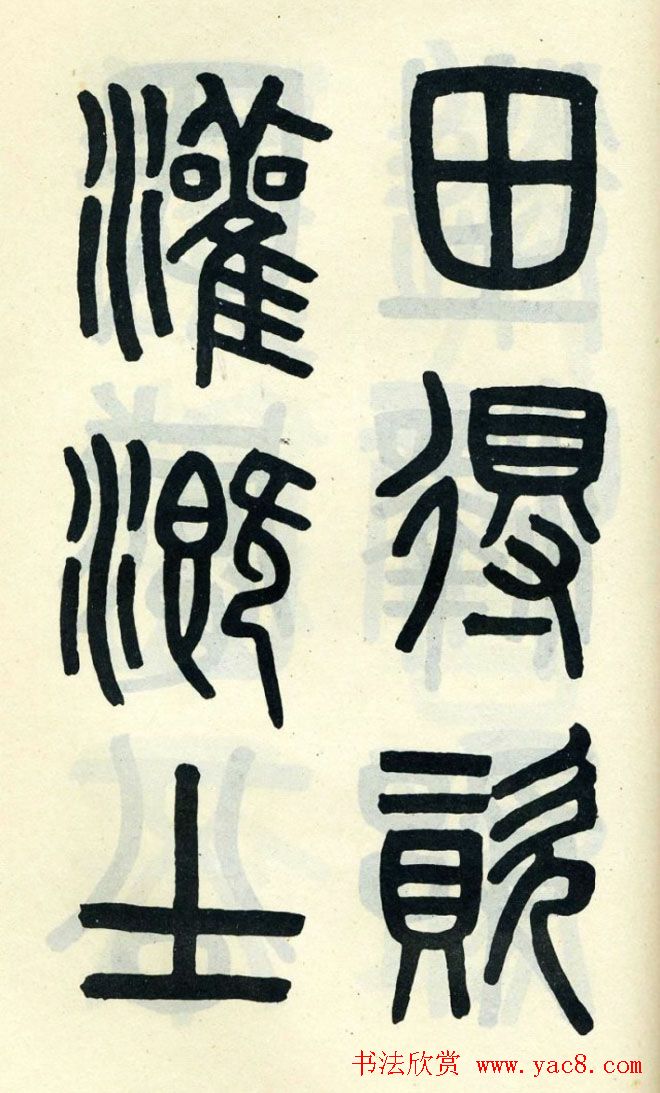 田得資
灌溉士
书法欣赏 www.yac8.com